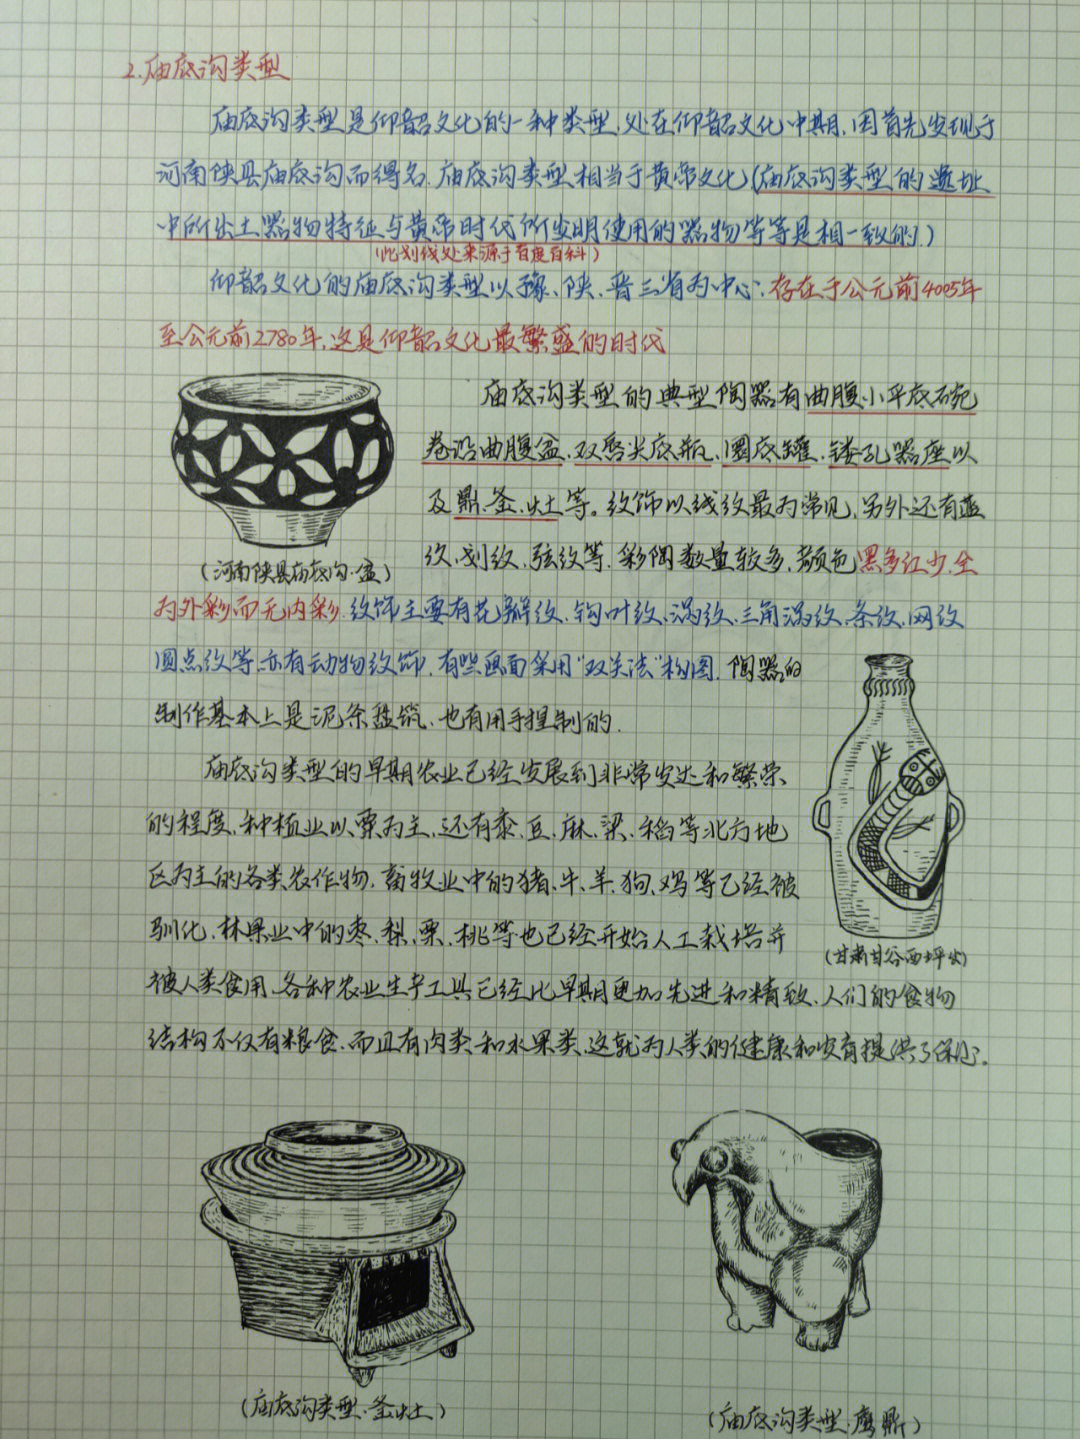 2.庙底沟类型
庙底沟类型是仰韶文化的一种类型,处在仰韶文化中期,因首先发现于
河南陕县庙底沟而得名.庙底沟类型相当于黄帝文化(庙底沟类型的遗址
中所出土器物特征与黄帝时代所发明使用的器物等等是相一致的.)
(此划线处来源于百度百科)
仰韶文化的庙底沟类型以豫、陕、晋三省为中心.存在于公元前4005年
至公元前2780年,这是仰韶文化最繁盛的时代
庙底沟类型的典型陶器有曲腹小平底碗
卷沿曲腹盆、双唇尖底瓶、圜底罐、镂孔器座以
及鼎、釜、灶等。纹饰以线纹最为常见,另外还有蓝
纹、划纹、弦纹等.彩陶数量较多,颜色黑多红少,全
(河南陕县庙底沟·盆)
为外彩而无内彩.纹饰主要有花瓣纹、钩叶纹、涡纹、三角涡纹、条纹、网纹
圆点纹等,亦有动物纹饰,有些画面采用"双关法"构图.陶器的
制作基本上是泥条盘筑、也有用手捏制的.
庙底沟类型的早期农业已经发展到非常发达和繁荣
的程度,种植业以粟为主,还有黍、豆、麻、梁、稻等北方地
区为主的各类农作物,畜牧业中的猪、牛、羊、狗、鸡等已经被
驯化,林果业中的枣、梨、栗、桃等也已经开始人工栽培并
(甘肃甘谷西坪出)
被人类食用.各种农业生产工具已经比早期更加先进和精致,人们的食物
结构不仅有粮食,而且有肉类和水果类,这就为人类的健康和发育提供了保证。
(庙底沟类型·釜灶)
(庙底沟类型·鹰鼎)